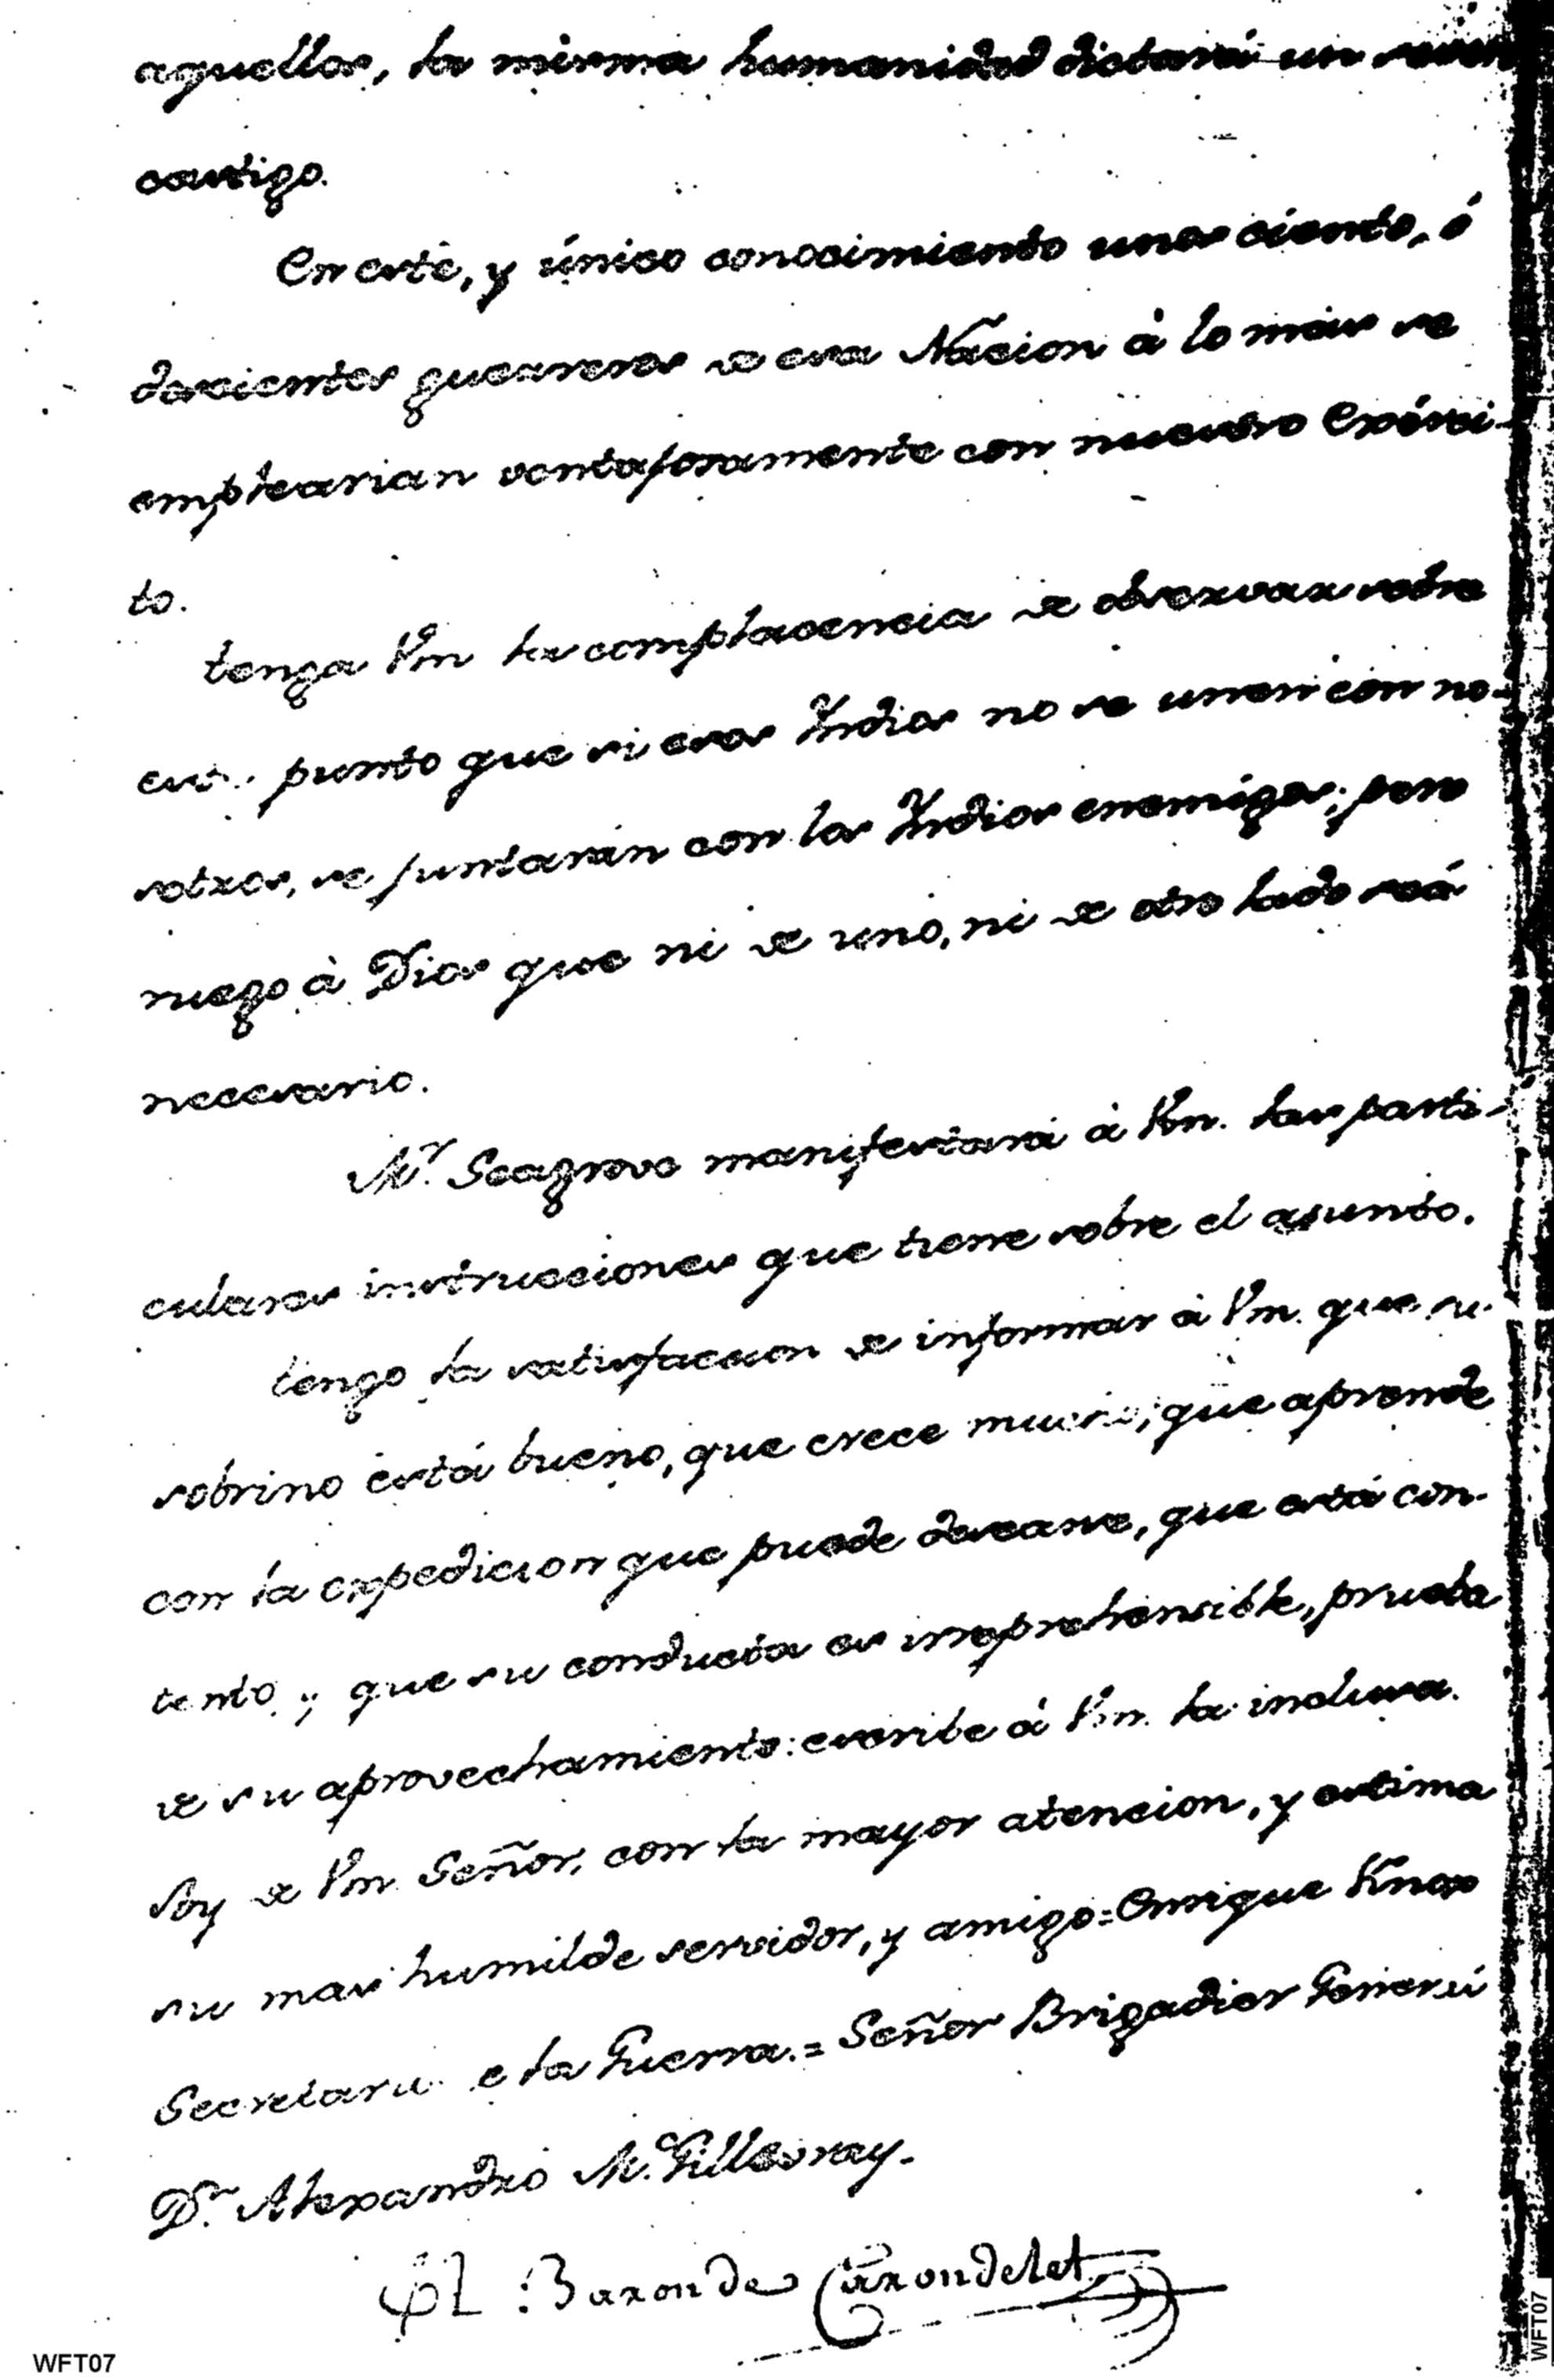 aquellos, la misma humanidad dictará un
castigo.
En este, y único conocimiento unos ciento, ó
doscientos guerreros de esa Nacion à lo mas se
emplearian ventajosamente con nuestro Exérci-
to.
tenga Vm la complacencia de observar sobre
este punto que si esos Yndios no se unen con no-
sotros, se juntarán con los Yndios enemigos; pero
ruego à Dios que ni de uno, ni de otro lado seá
necesario.
Mr. Seagrove manifestará à Vm. las parti-
culares instrucciones que tiene sobre el asunto.
tengo la satisfaccion de informar à Vm. que su
sobrino está bueno, que crece mucho; que aprende
con la expedicion que puede desearse, que está con-
tento y que su conducta es irreprehensible, prueba
de su aprovechamiento: escribe à Vm. la inclusa.
Soy de Vm Señor, con la mayor atencion, y estima
su mas humilde servidor, y amigo = Enrique Knox
Secretario de la Guerra. = Señor Brigadier General
Dn. Alexandro M. Gillevray.
El Baron de Carondelet
WFT07
WFT07